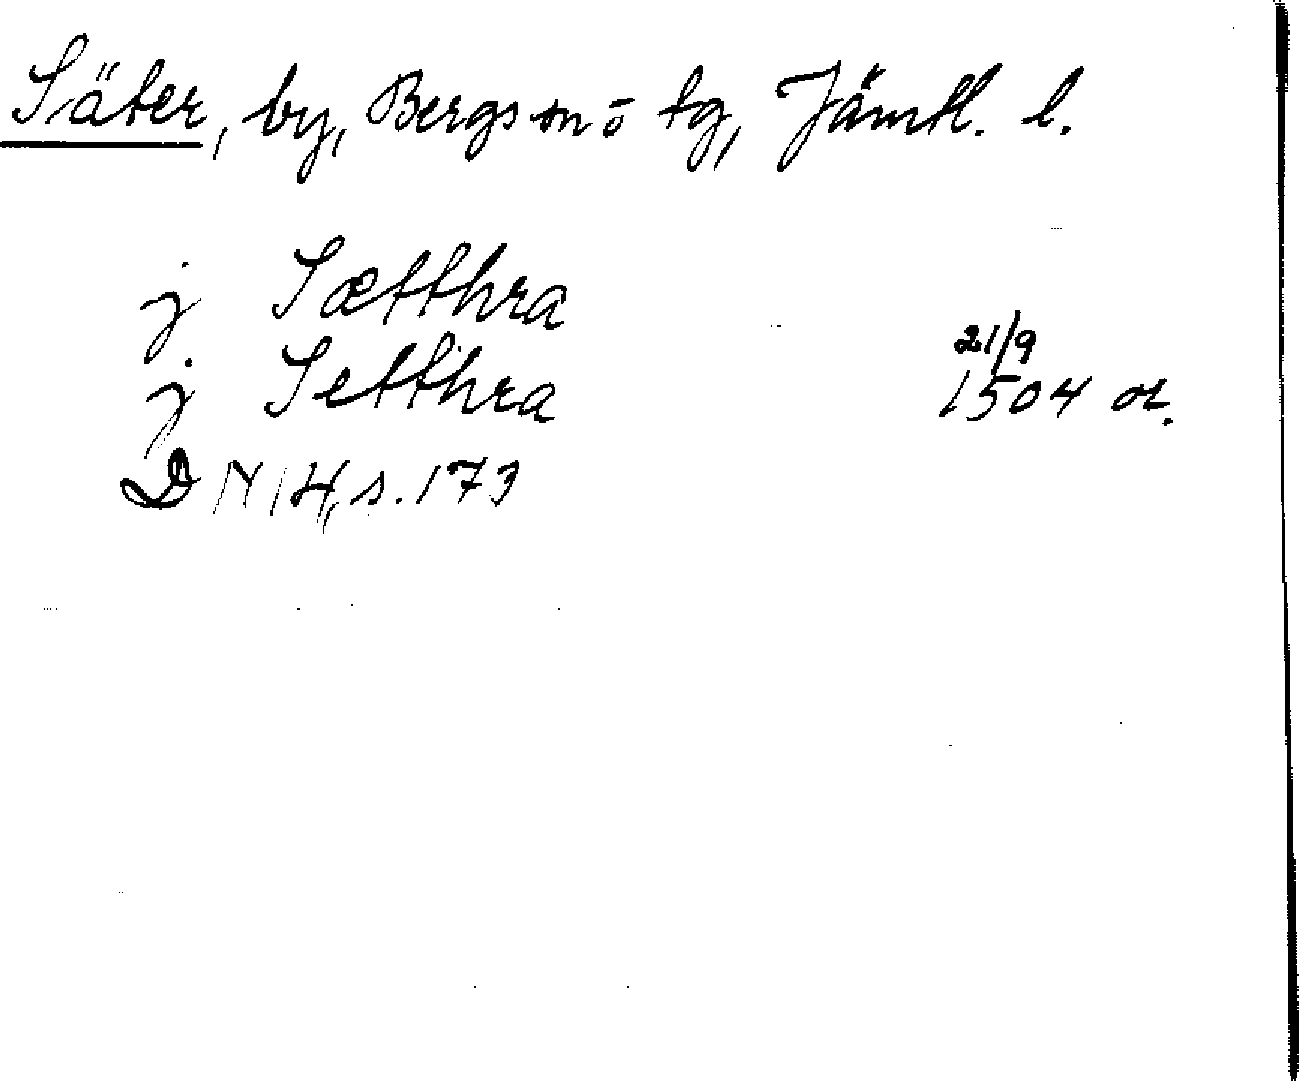 Säter, by, Bergs sn o tg, Jämtl. l.
j Sætthra
j Setthra 21/9 1504 or.
DN 14, s. 173